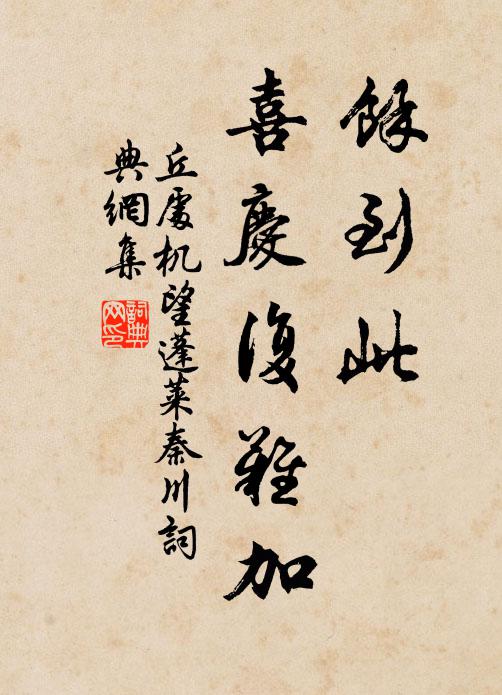 餘到此
喜慶復難加
丘處机望蓬萊秦川詞
典網集
詞典
网印